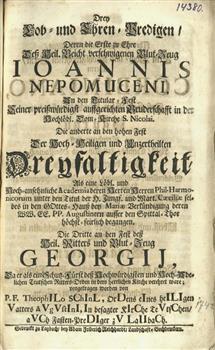 14380.
Drey
Lob- und Ehren-Predigen/
Deren die Erste zu Ehre
Deß Heil. Beicht verschwignen Blut-Zeug
IOANNIS
NEPOMUCENI
In den Titular-Fest
Seiner preißwürdigst aufgerichten Bruderschafft in der
Hochlöbl. Dom-Kirche S. Nicolai.
Die anderte an den hohen Fest
Der Hoch-Heiligen und Unzertheilten
Dreyfaltigkeit
Als eine Löbl. und
Hoch-ansehnliche Academia deren Herren Herren Phil-Harmo-
nicorum unter den Titul der H. Jungf. und Mart. Cæciliæ selbes
in den GOttes-Hauß bey Mariæ Verkündigung deren
WW. EE. PP. Augustinern ausser den Spittal-Thor
höchst-feirlich begangen.
Die Dritte an den Fest deß
Heil. Ritters und Blut-Zeug
GEORGIJ,
Da er als ein Schutz-Fürst deß Hochwürdigsten und Hoch-Ade-
lichen Teutschen Ritter-Ordens in dero herrlichen Kirche verehret ware;
vorgetragen worden von
P. F. TheophILo SChInL, Der Dens eInes heILIgen
Vatters aVgVstInI, In besagter KIrChe zV VnsChen/
aVCh Fasten-PreDIger; V LaIbaCh.
Gedruckt zu Laybach/ bey Adam Friderich Reichhardt/ Landschafft-Buchdruckern.